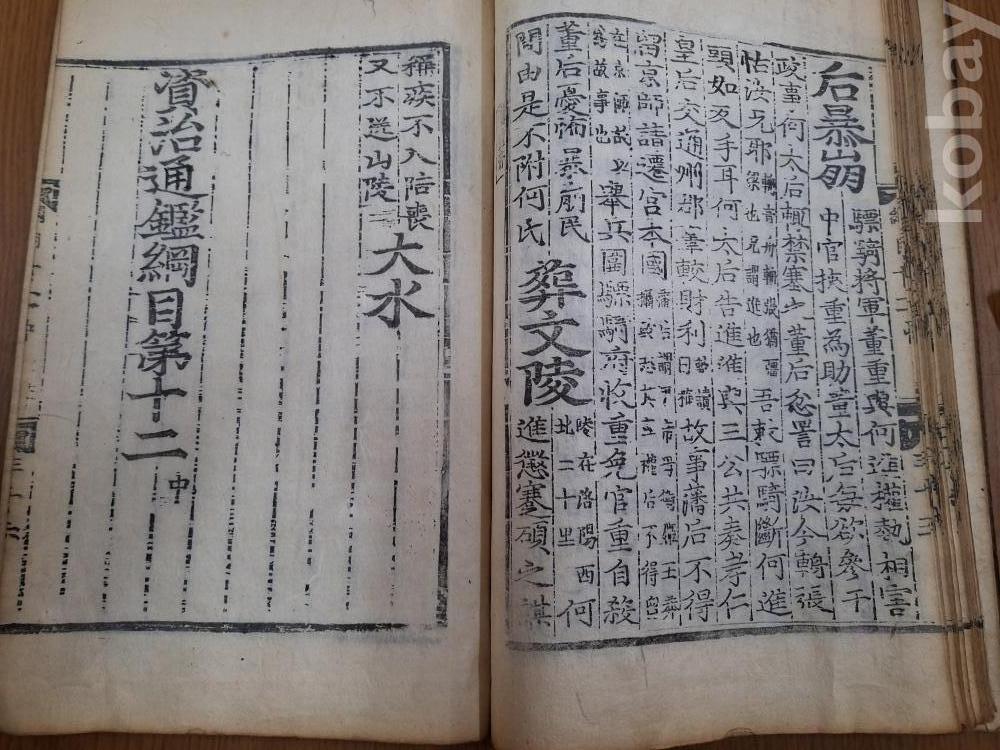 后暴崩
驃騎將軍董重與何進權勢相害
中官挾重為助董太后每欲參干
政事何太后輒禁塞之董后忿詈曰汝今輈張
怙汝兄耶輈音舟輈張猶彊梁也兄謂進也吾敕驃騎斷何進
頭如反手耳何太后告進進與三公共奏孝仁
皇后交通州郡辜較財利故事藩后不得
留京師請遷宮本國
故事也舉兵圍驃騎府收重免官重自殺
董后憂怖暴崩民
間由是不附何氏
葬文陵
陵在洛陽西北二十里何
進懲蹇碩之謀
稱疾不入陪喪
又不送山陵
大水
資治通鑑綱目第十二中
kobay